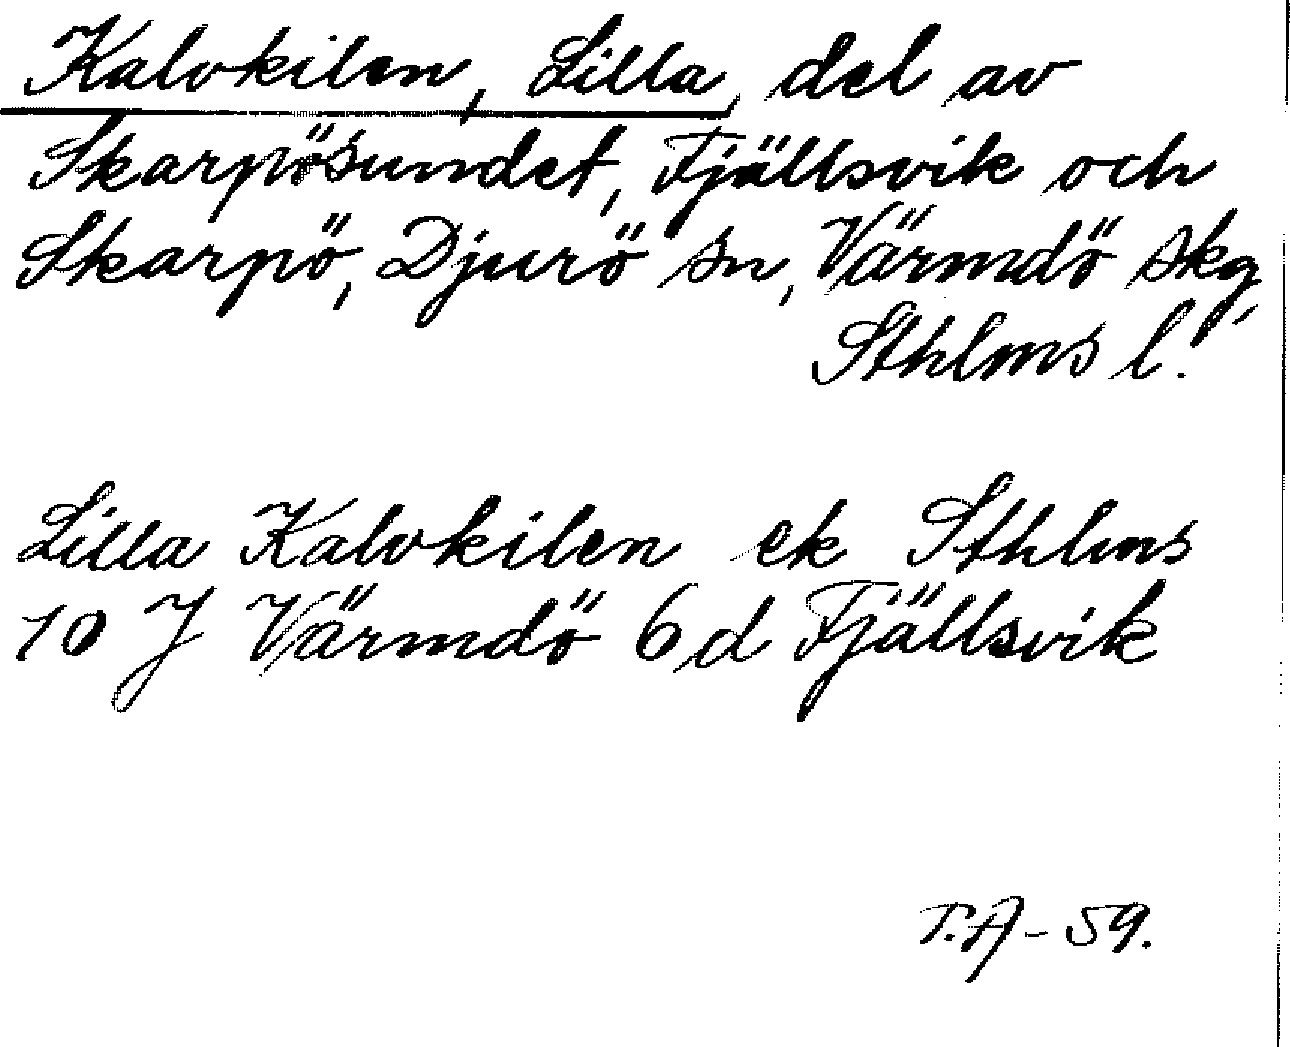 Kalvkilen, Lilla, del av
Skarpösundet, Fjällsvik och
Skarpö, Djurö sn, Värmdö skg,
Sthlms l.
Lilla Kalvkilen ek Sthlms
10 J Värmdö 6 d Fjällsvik
T.A - 59.